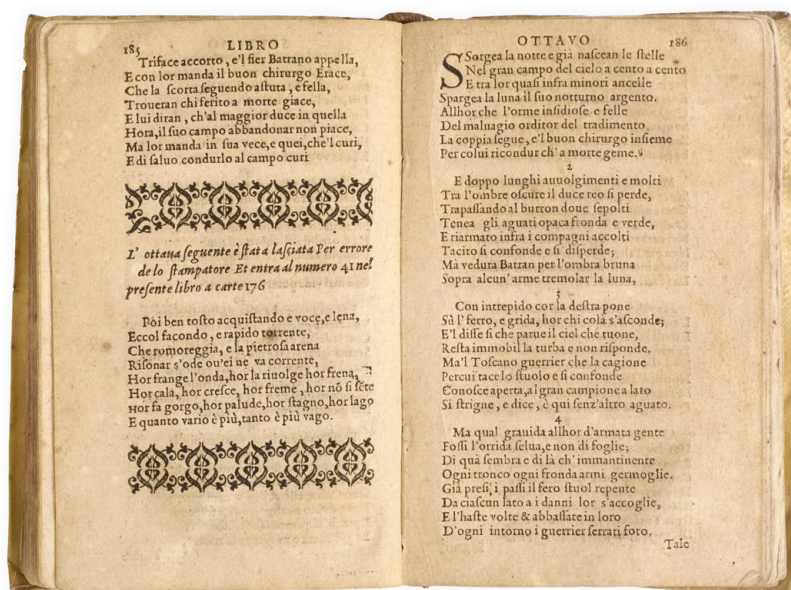 185 LIBRO
Triface accorto, e'l fier Batrano appella,
E con lor manda il buon chirurgo Erace,
Che la scorta seguendo astuta, e fella,
Troueran chi ferito a morte giace,
E lui diran, ch'al maggior duce in quella
Hora, il suo campo abbandonar non piace,
Ma lor manda in sua vece, e quei, che'l curi,
E di saluo condurlo al campo curi
L' ottaua seguente è stata lasciata Per errore
de lo stampatore Et entra al numero 41 nel
presente libro a carte 176
Poi ben tosto acquistando e voce, e lena,
Eccol facondo, e rapido torrente,
Che romoreggia, e la pietrosa arena
Risonar s'ode ou'ei ne va corrente,
Hor frange l'onda, hor la riuolge hor frena,
Hor cala, hor cresce, hor freme, hor nõ si sẽte
Hor fa gorgo, hor palude, hor stagno, hor lago
E quanto vario è più, tanto è più vago.
OTTAVO 186
SSorgea la notte e già nascean le stelle
Nel gran campo del cielo a cento a cento
E tra lor quasi infra minori ancelle
Spargea la luna il suo notturno argento.
Allhor che l'orme insidiose e felle
Del maluagio orditor del tradimento
La coppia segue, e'l buon chirurgo insieme
Per colui ricondur ch' a morte geme.
2
E doppo lunghi auuolgimenti e molti
Tra l'ombre oscure il duce reo si perde,
Trapassando al burron doue sepolti
Tenea gli aguati opaca fronda e verde,
E riarmato infra i compagni accolti
Tacito si confonde e si disperde;
Mà veduta Batran per l'ombra bruna
Sopra alcun' arme tremolar la luna,
3
Con intrepido cor la destra pone
Sù l' ferro, e grida, hor chi colà s'asconde;
E'l disse sì che parue il ciel che tuone,
Resta immobil la turba e non risponde.
Ma'l Toscano guerrier che la cagione
Percui tace lo stuolo e si confonde
Conosce aperta, al gran campione a lato
Si strigne, e dice, è qui senz'altro aguato.
4
Ma qual grauida allhor d'armata gente
Fossi l'orrida selua, e non di foglie;
Di quà sembra e di là ch' immantinente
Ogni tronco ogni fronda armi germoglie.
Già presi i passi il fero stuol repente
Da ciascun lato a i danni lor s'accoglie,
E l'haste volte & abbassate in loro
D'ogni intorno i guerrier serrati foro.
Tale